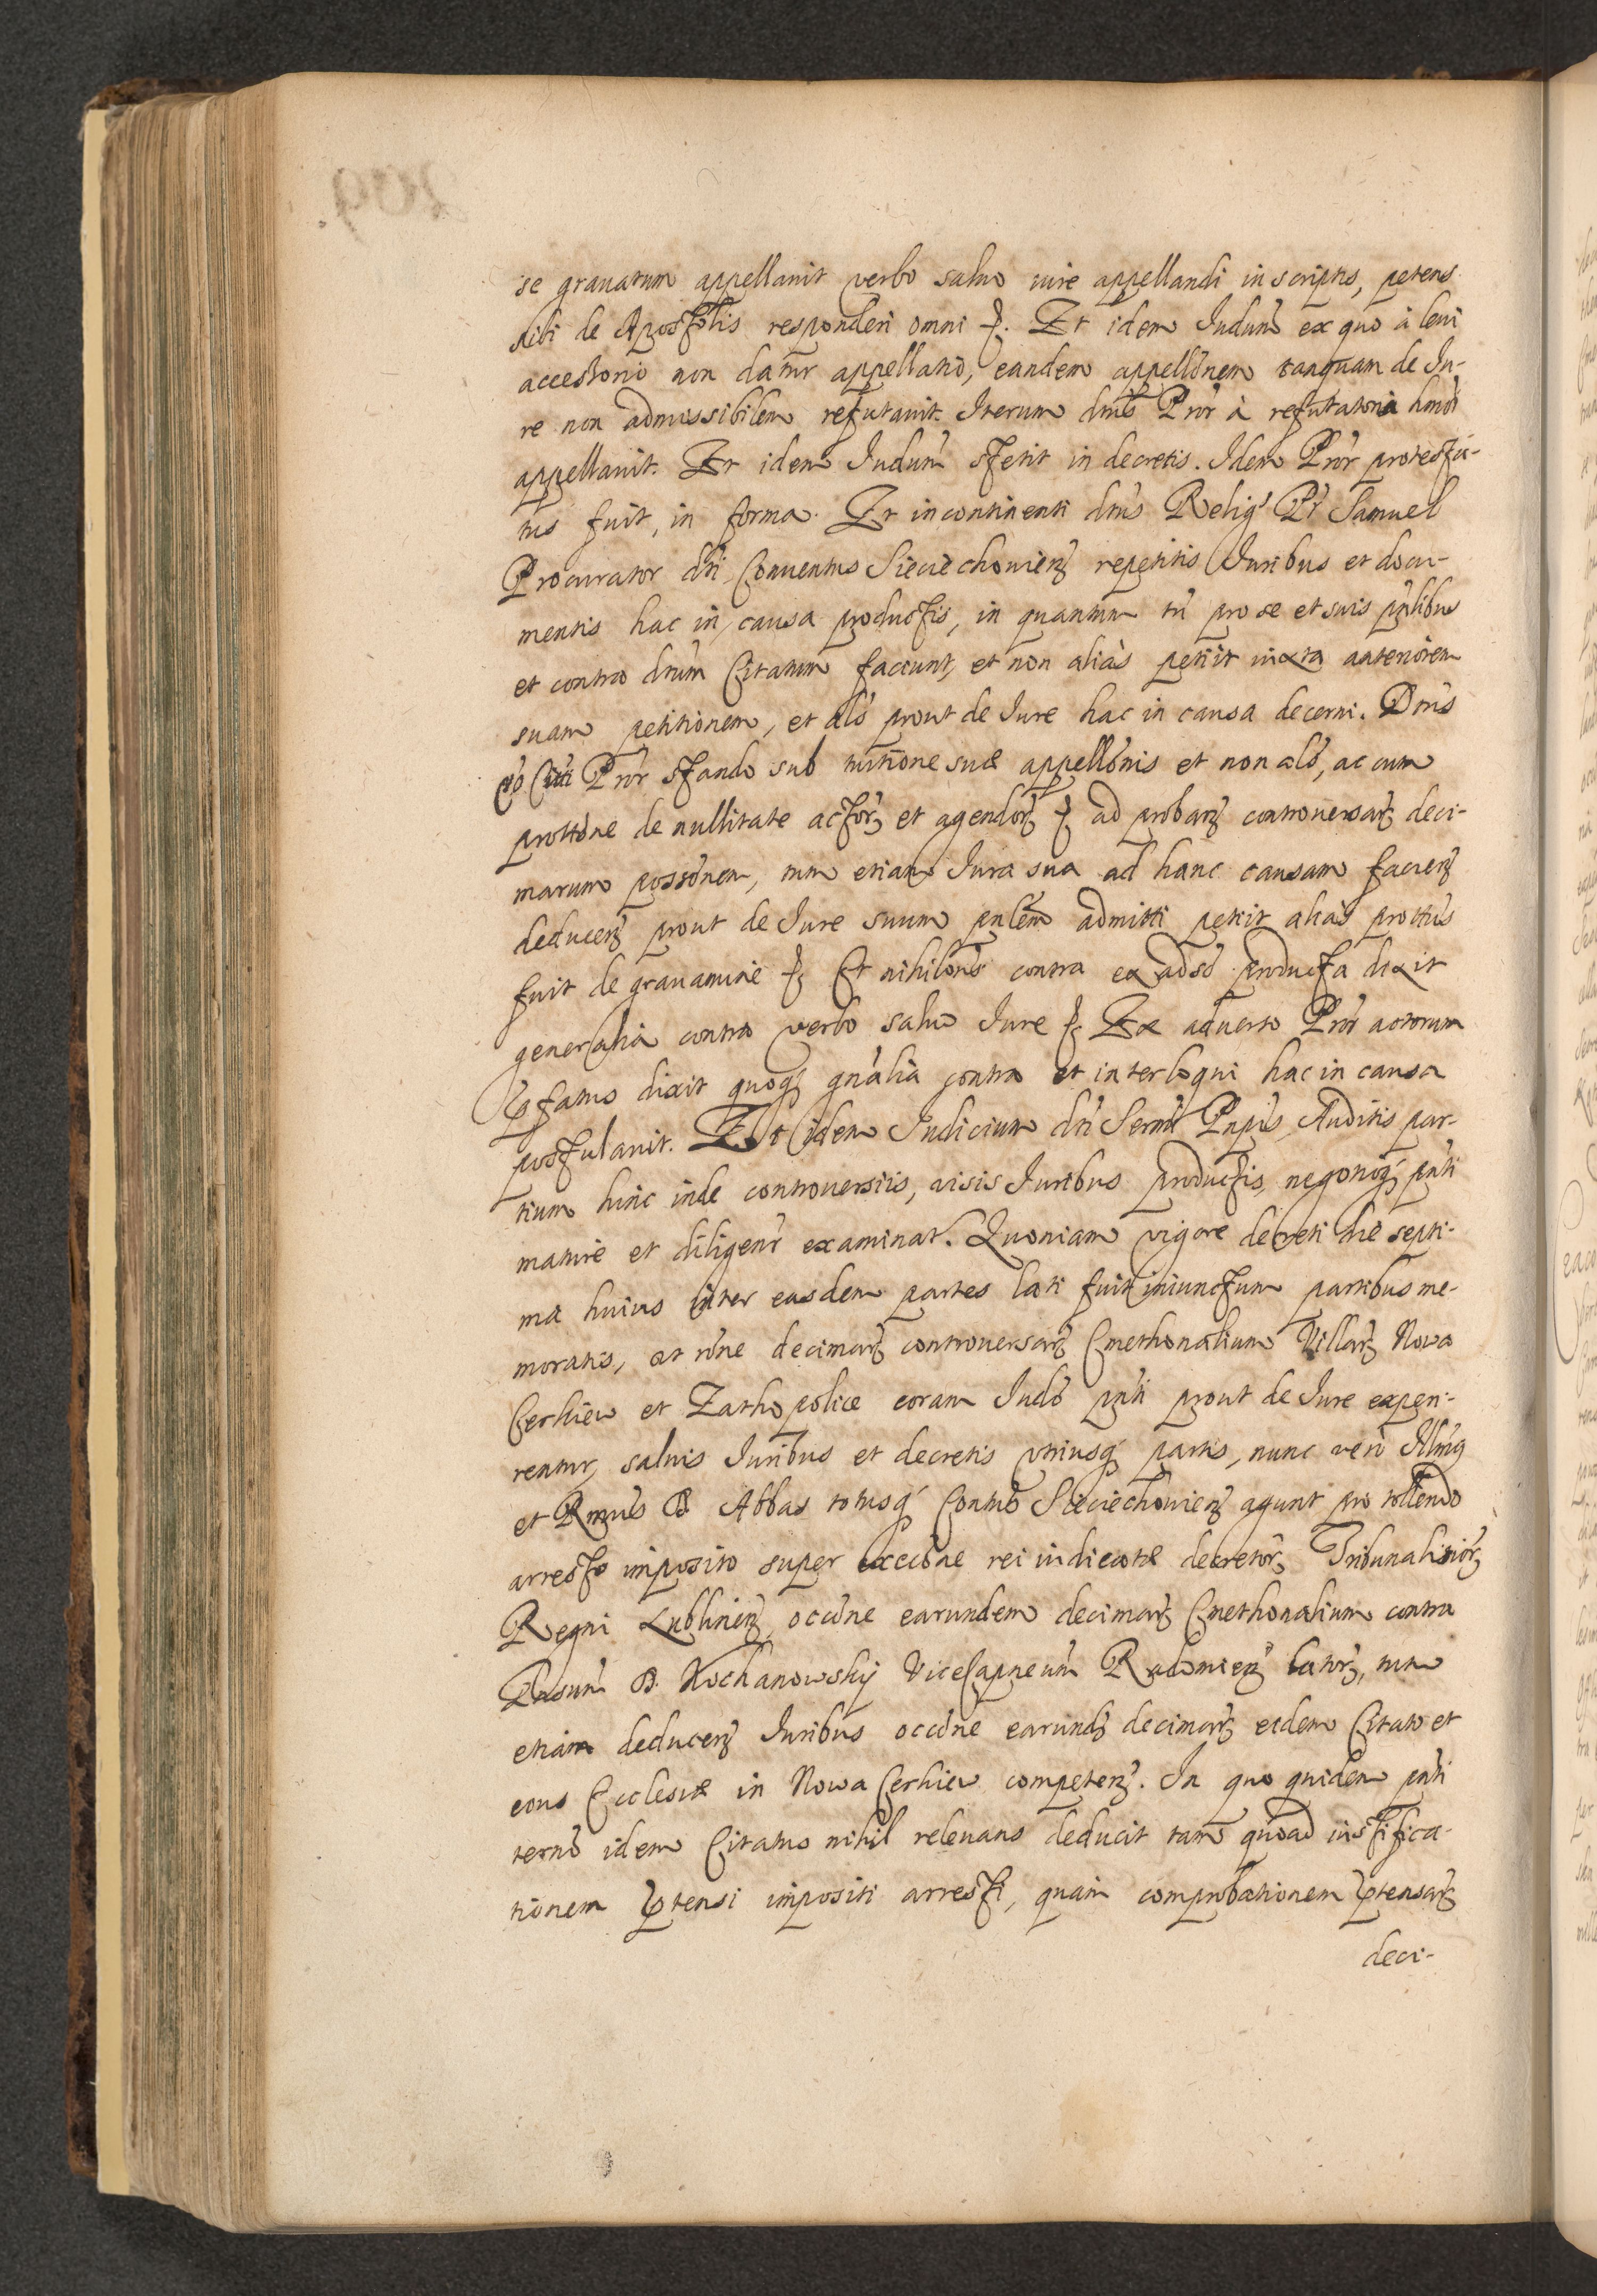 se grauatum appellauit verbo saluo iure appellandi in scriptis, petens
sibi de Apostolis responderi omni &. Et idem Iudium ex quo à leui
accessorio non datur appellatio, eandem appellõnem tanquam de Iu-
re non admissibilem refutauit. Iterum dnus Prór à refutatoria hmoi
appellauit. Et idem Iudium stetit in decretis. Idem Prór protesta-
tus fuit, in forma. Et incontinenti dnus Religs Pr Samuel
Procurator dti Conuentus Sieciechouien repetitis Iuribus et docu-
mentis hac in causa productis, in quantum tn pro se et suis pnlibus
et contra dnum Citatum faciunt, et non aliàs petiit iuxta anteriorem
suam petitionem, et als prout de Iure hac in causa decerni. Dnus
vo Citti Prór stando sub tuitione suæ appellõnis et non als, ac cum
prottõne de nullitate actor et agendor & ad proban controuersar deci-
marum possõnem, tum etiam Iura sua ad hanc causam facien
deducen prout de Iure suum pnlem admitti petiit aliàs prottus
fuit de grauamine & Et nihilons contra ex adso producta dixit
generalia contra verbo saluo Iure & Ex aduerso Prór actorum
pfatus dixit quoq gnalia contra et interloqui hac in causa
postulauit. Et idem Iudicium dti Sermi Pnpis, Auditis par-
tium hinc inde controuersiis, visis Iuribus productis, negotioq pnti
mature et diligenr examinat. Quoniam vigore decreti die septi-
ma huius inter easdem partes lati fuit iniunctum partibus me-
moratis, at rõne decimar controuersar Cmethonalium Villar Nowa
Cerkiew et Zathopolice coram Iudo pnti prout de Iure experi-
rentur, saluis Iuribus et decretis vtriusq partis, nunc verò Illmus
et Rmus D Abbas totusq Contus Sieciechouien agunt pro tollendo
arresto imposito super exccõne rei iudicatæ decretor Tribunalitior
Regni Lublinen, occõne earundem decimar Cmethonalium contra
D. Kochanowskij ViceCapneum Radomien lator, tum
etiam deducen Iuribus occõne earund decimar eidem Citato et
eous Ecclesiæ in Nowa Cerkiew competen. In quo quidem pnti
termo idem Citatus nihil releuans deducit tam quoad iustifica-
tionem ptensi impositi arresti, quàm comprobationem ptensar
deci-